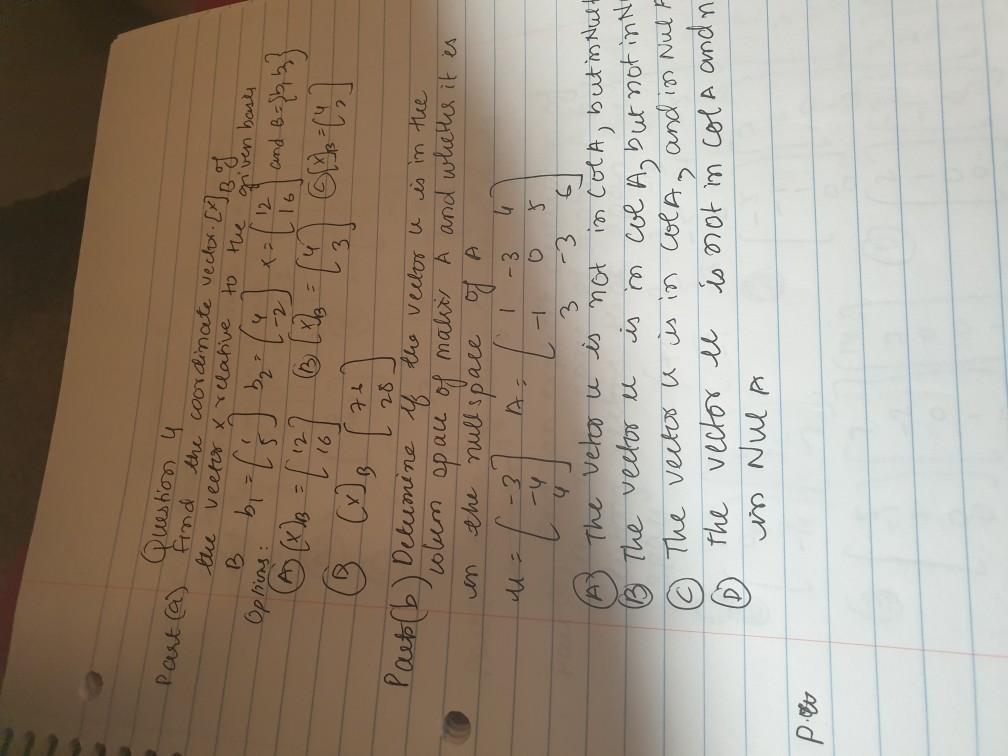 Part (a) Question 4
Find the coordinate vector [x]B of
the vector x relative to the given bases
B b1 = [1 5] b2 = [4 -2] x = [12 16] and B = {b1, b2}
Options:
(A) [x]B = [12 16] (B) [x]B = [4 3] (C) [x]B = [4 2]
(B) [x]B [76 28]
Part (b) Determine if the vector u is in the
column space of matrix A and whether it is
in the null space of A
u = [-3 -4 4] A = [1 -3 4
-1 0 5
3 -3 6]
(A) The vector u is not in col A, but in Nul
(B) The vector u is in col A, but not in N
(C) The vector u is in col A, and in Nul A
(D) The vector u is not in col A and n
in Nul A